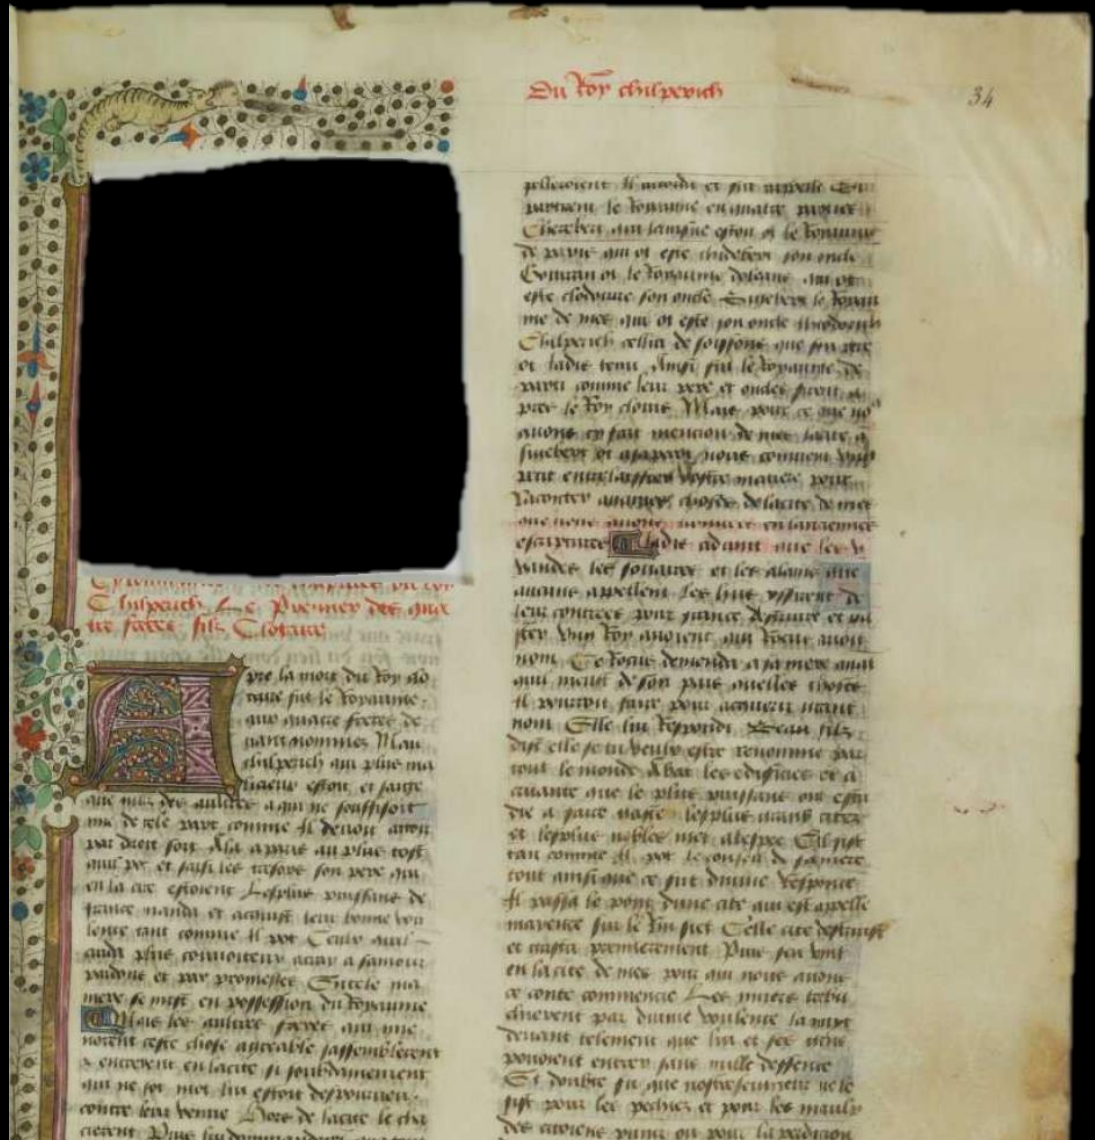 Du Roy chilperich
34
Chilperich Le Premier des qua
tre freres filz Clotaire
Apre la mort du Roy clo
taire fu le Royaume
aux quatre freres de
uant nommez Mais
chilperich qui plus ma
licieux estoit et saige
que nulz des aultres a qui ne souffisoit
mie de tele part comme Il deuoit auoir
par droit sort Ala a paris au plus tost
quil pot et saisi les tresors son pere qui
en la cite estoient Lesplus puissans de
france manda et acquist leur bonne vou
lente tant comme Il pot Ceulx quil
cuida plus conuoiteux attray a samour
par dons et par promesses En cele ma
niere se mist en possession du Royaume
Mais les aultres freres qui mie
norent ceste chose agreable sassemblerent
et entrerent en la cite si soubdainement
qui ne sot mot lui estoit despourueu
contre leur venue Hors de la cite le cha
cierent Puis lui
pelleroient Il acorda et fut appelle
partirent le Royaume en quatre parties
Cherebert qui laisne estoit ot le Royaume
de paris qui ot este childebert son oncle
Gontran ot le Royaume dorliens qui ot
este clodomire son oncle Sigebert le Royau
me de mes qui ot este son oncle theoderich
Chilperich cellui de soissons que son pere
ot iadis tenu Ainsi fut le Royaume de
parti comme leur pere et oncles firent a
pres le Roy clouis Mais pour ce que no9
auons cy fait mencion de mes la cite q̄
sigebert ot a sa part nous conuient vng
petit entrelaissier nostre matiere pour
Raconter aucunes choses de la cite de mes
que nous auons trouuees en lanciennes
escriptures Iadis aduint que les w
wandes les souaues et les alains que
aucuns appellent les huns yssirent de
leur contrees pour france destruire et ga
ster Vng Roy auoient qui Rocus auoit
nom Ce Rocus demanda a sa mere auant
quil meust de son pais quelles choses
Il pourroit faire pour acquerir grant
nom Elle lui Respondi Beau filz
dist elle se tu veulx estre renomme par
tout le monde Abat les edifices et
quanque que le plus puissans ont estu
die a faire
et lesplus nobles met a lespee Cil fist
tan comme Il pot le conseil de sa mere
tout ainsi que ce fut diuine Response
Il passa le pont dune cite qui est appelle
mayence sur le Rin siet Celle cite destruist
et craspa premierement Puis sen vint
en la cite de mes pour qui nous auons
ce conte commencie Les murs tresbu
cherent par diuine voulente la nuyt
deuant telement que lui et ses gens
pouoient entrer sans nulle deffence
Si doubte fu que nostre seigneur ne le
fist pour les pechiez et pour les maulx
des citoiens punir ou pour la perdicion